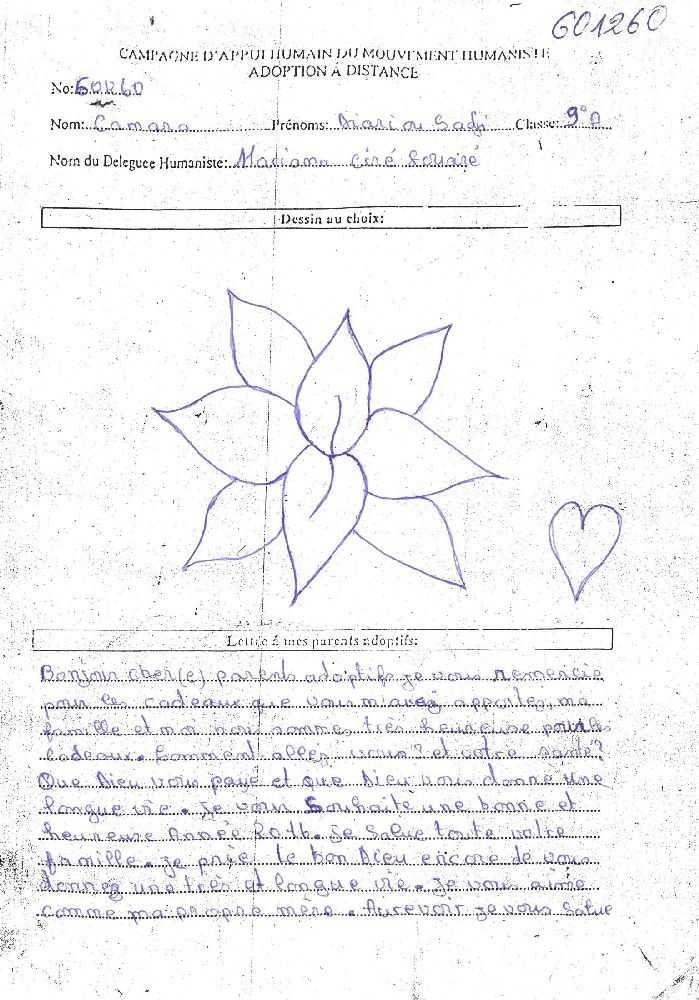 601260
CAMPAGNE D'APPUI HUMAIN DU MOUVEMENT HUMANISTE
ADOPTION Á DISTANCE
No:
Nom: Camara Prénoms: Diariou Sadji Classe: 9°A
Nom du Deleguee Humaniste: Madiama Ciré Souaré
Dessin au choix:
Lettre á mes parents adoptifs:
Bonjour cher(e) parents adoptifs je vous remercie
pour les cadeaux que vous m'avez apportez, ma
famille et moi nous sommes très heureuse pour les
Cadeaux. Comment allez vous? et votre santé?
Que Dieu vous paye et que Dieu vous donne une
longue vie. je vous Souhaite une bonne et
heureuse Année 2016. je Salue toute votre
famille. je prie le bon Dieu encore de vous
donnez une très et longue vie. Je vous aime
comme ma propre mère. Aurevoir je vous Salue